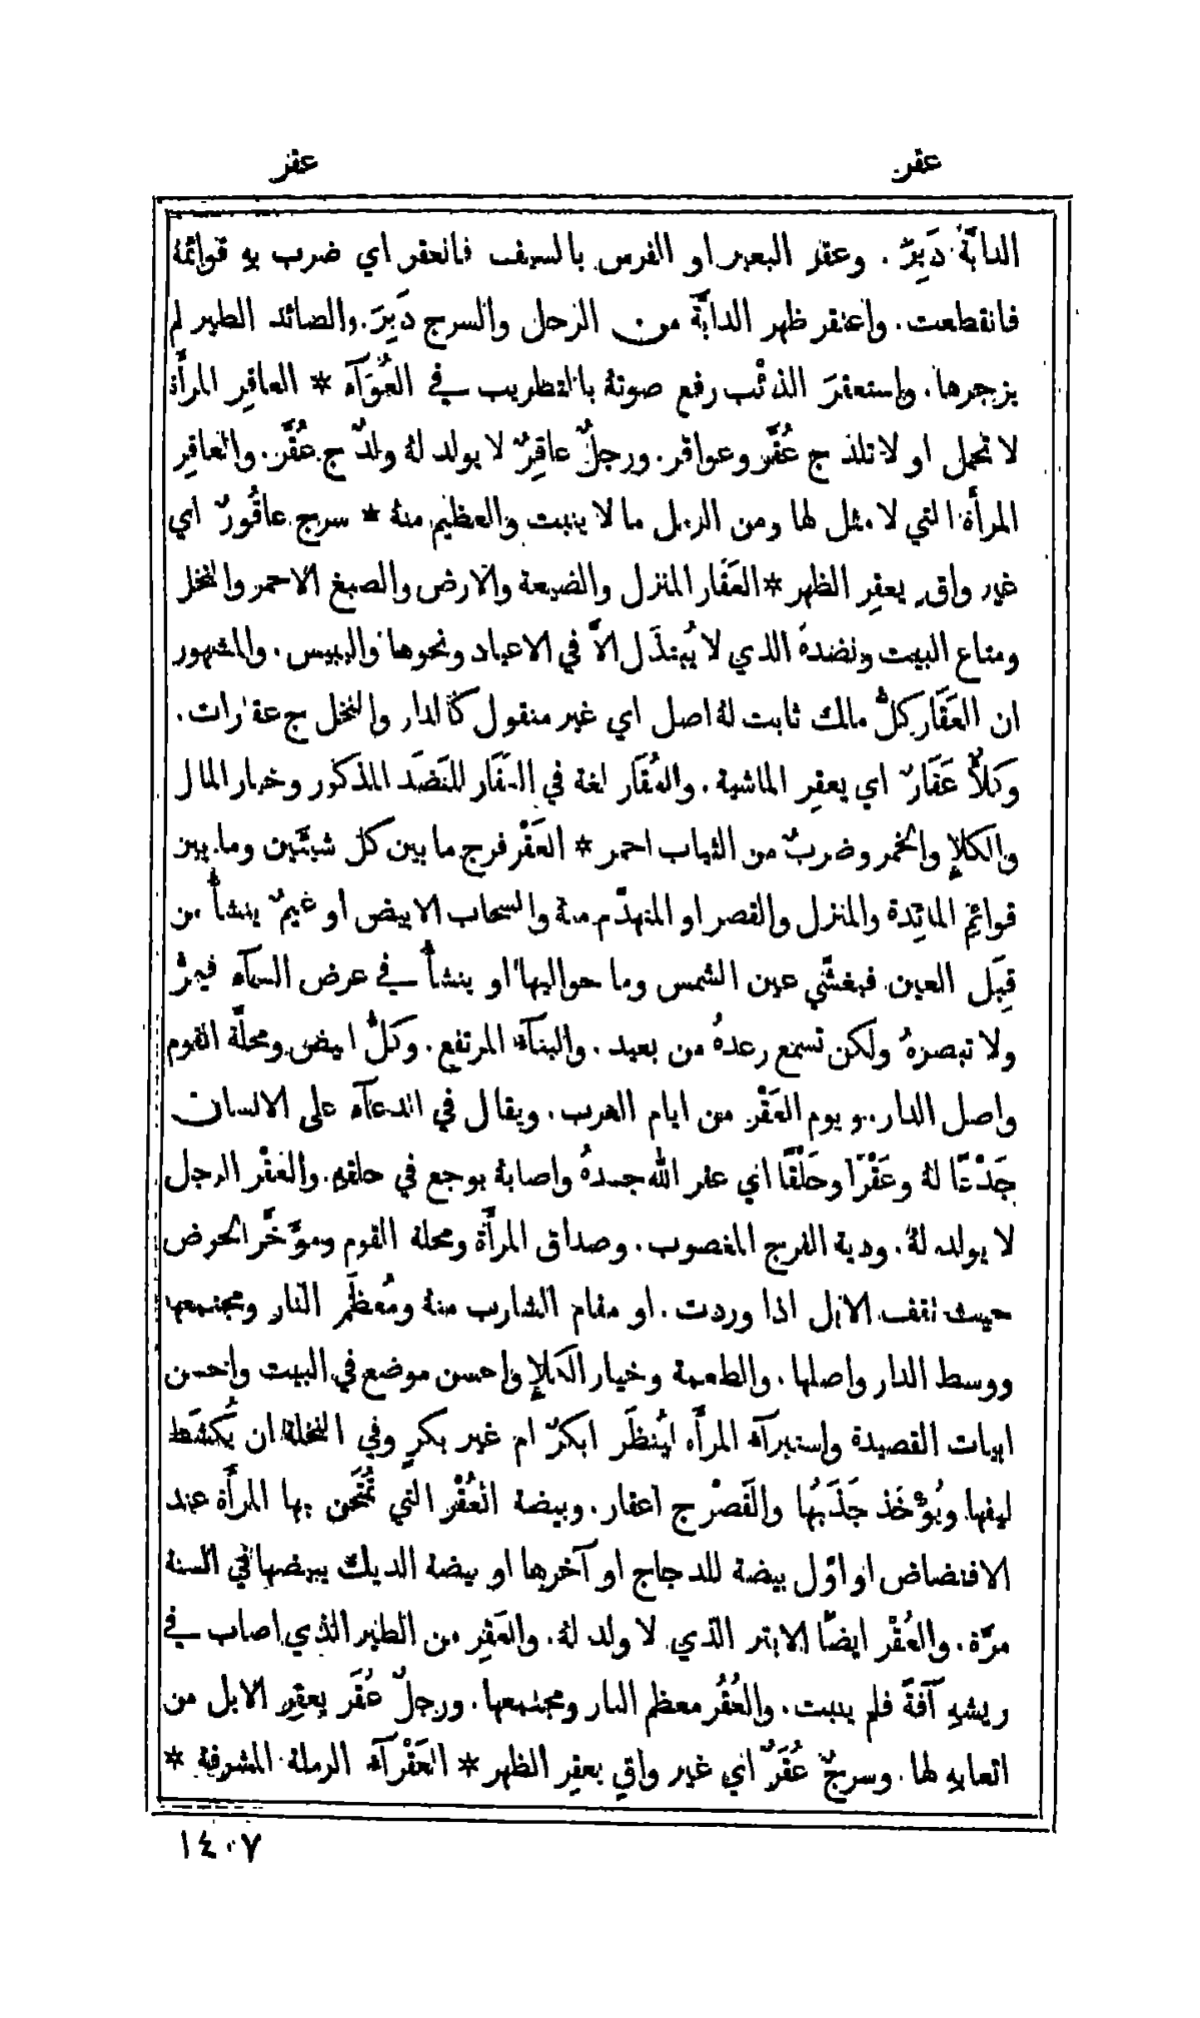 عقر
عقر
الدابَّةُ دَبِرَ . وعقر البعير او الفرس بالسيف فانعقر اي ضرب بهِ قوائمهُ
فانقطعت . واعتقر ظهر الدابَّة من الرحل والسرج دَبِرَ . والصائد الطير لم
يزجرها . واستعقرَ الذئْب رفع صوتهُ بالتطريب في العُوَآء * العاقِر المرأَة
لا تحمل او لا تلد ج عُقَّر وعواقر . ورجلٌ عاقِرٌ لا يولد لهُ ولدٌ ج عُقَّر . والعاقِر
المرأَة التي لا مثل لها ومن الرمل ما لا ينبت والعظيم منهُ * سرج عاقُورٌ اي
غير واقٍ يعقِر الظهر * العَقَار المنزل والضيعة والارض والصبغ الاحمر والنخل
ومتاع البيت ونضدهُ الذي لا يُبتذَل الَّا في الاعياد ونحوها واليبيس . والمشهور
ان العَقَار كلُّ مالك ثابت لهُ اصل اي غير منقول كالدار والنخل ج عقارات .
وكلأٌ عَقَارٌ اي يعقِر الماشية . والعُقَار لغة في العَقَار للنَضَد المذكور وخيار المال
والكلإِ والخمر وضربٌ من الثياب احمر * العَقْر فرج ما بين كل شيئَين وما بين
قوائِم المائِدة والمنزل والقصر او المتهدّم منهُ والسحاب الابيض او غيمٌ ينشأُ من
قِبَل العين فيغشَّي عين الشمس وما حواليها او ينشأُ في عرض السمآء فيمرُّ
ولا تبصرهُ ولكن تسمع رعدهُ من بعيد . والبنآء المرتفع . وكلُّ ابيض ومحلَّة القوم
واصل الدار . ويوم العَقْر من ايام العرب . ويقال في الدعآء على الانسان
جَدْعًا لهُ وعَقْرًا وحَلْقًا اي عقر الله جسدهُ واصابهُ بوجع في حلقهِ . والعُقْر الرجل
لا يولد لهُ . ودية الفرج المغصوب . وصداق المرأَة ومحلة القوم ومؤَخَّر الحوض
حيث تقف الابل اذا وردت . او مقام الشارب منهُ ومُعظَم النار ومجتمعها
ووسط الدار واصلها . والطعمة وخيار الكلإِ واحسن موضع في البيت واحسن
ابيات القصيدة واستبرآء المرأَه ليُنظَر ابكرٌ ام غير بكرٍ وفي النخلة ان يُكشَط
ليفها ويُؤْخَذ جَذَبُها والقَصْر ج اعقار . وبيضة العُقْر التي تُمْتَحَن بها المرأَة عند
الافتضاض او اوَّل بيضة للدجاج او آخرها او بيضة الديك يبيضها في السنة
مرَّة . والعُقْر ايضًا الابتر الذي لا ولد لهُ . والعَقِر من الطير الذي اصاب في
ريشهِ آفةٌ فلم ينبت . والعُقُر معظم النار ومجتمعها . ورجلٌ عُقَر يعقِر الابل من
اتعابهِ لها . وسرجٌ عُقَرٌ اي غير واقٍ يعقِر الظهر * العَقْرآء الرملة المشرفة *
١٤٠٧